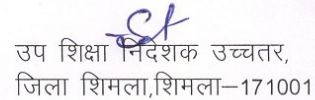 उप शिक्षा निदेशक उच्चतर,
जिला शिमला,शिमला–171001